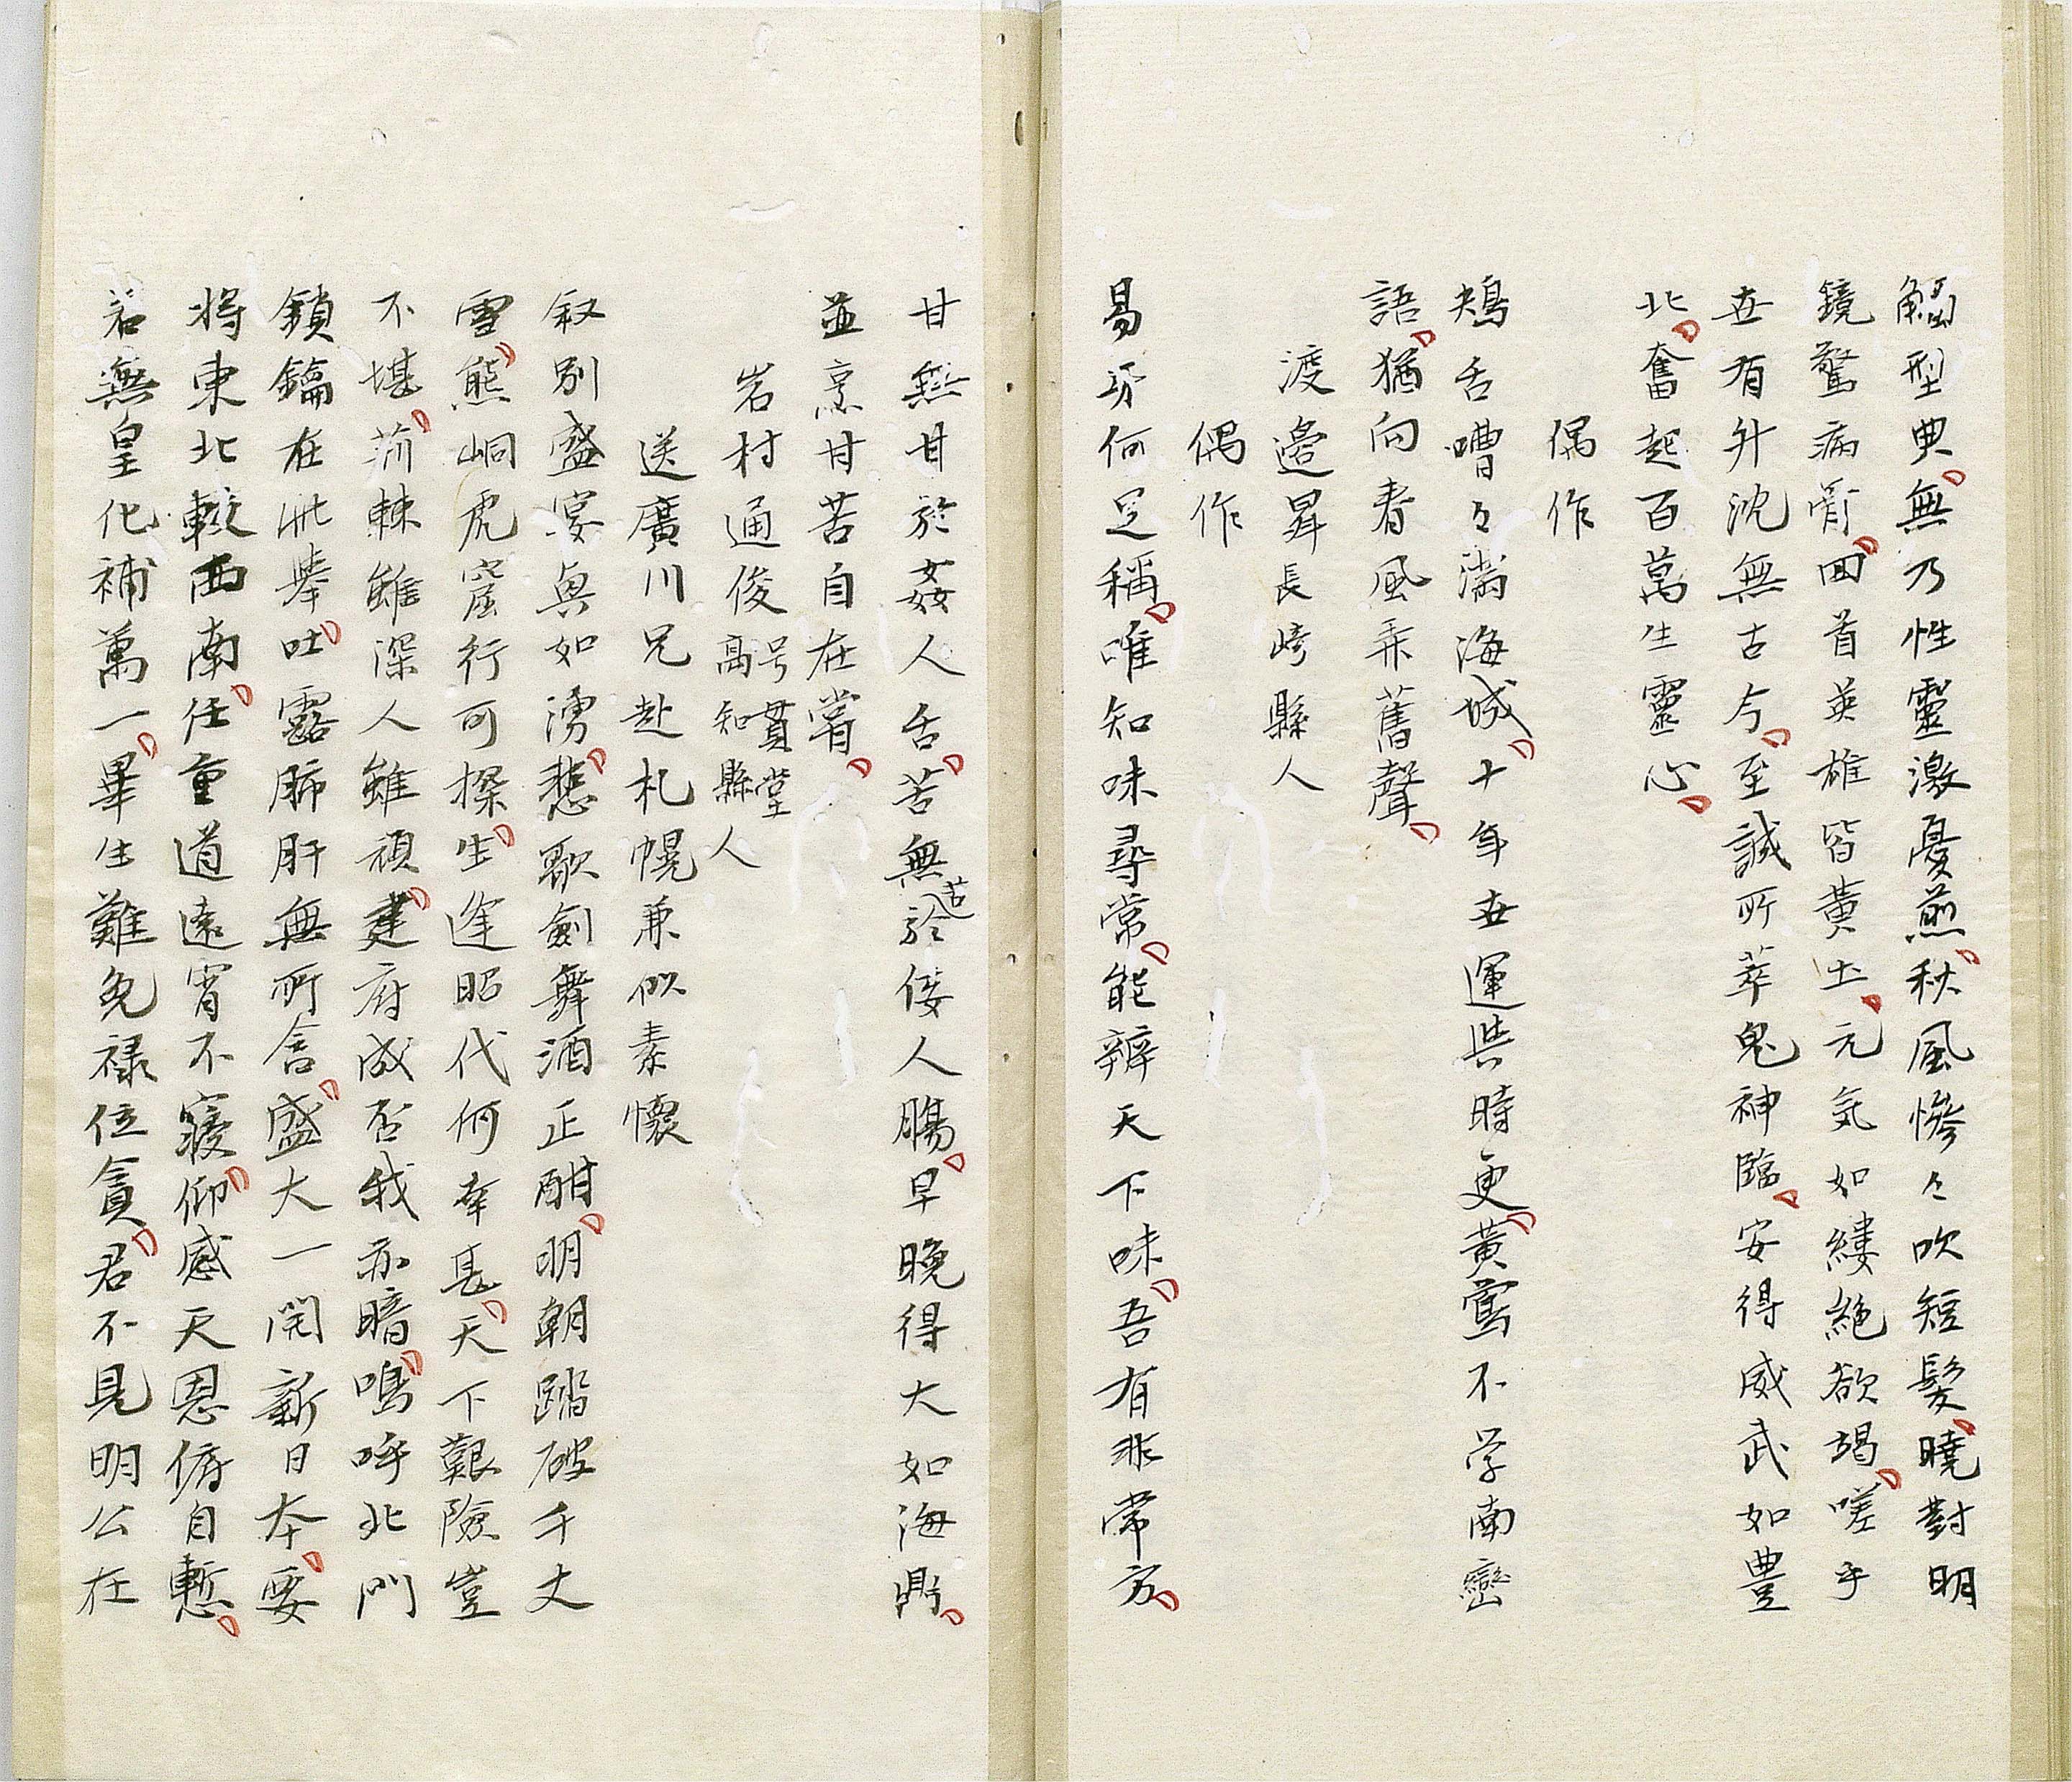 觸型典無乃性靈激憂煎秋風惨々吹短髮曉對明
鏡驚病骨回首英雄皆黄土元気如縷絶欲竭嗟乎
世有升沈無古今至誠所萃鬼神臨安得威武如豊
北奮起百萬生靈心
偶作
鴂舌嘈々満海城十年世運与時更黄鶯不学南蠻
語猶向春風弄舊聲
渡邉昇長崎縣人
偶作
易牙何足稱唯知味尋常能辨天下味吾有非常方
甘無甘於姦人舌苦無苦於倭人腸早晩得大如海鼎
並烹甘苦自在嘗
岩村通俊号貫堂高知縣人
送廣川兄赴札幌兼似素懷
叙別盛宴興如湧悲歌劍舞酒正酣明朝踏破千丈
雪熊峒虎窟行可探生逢昭代何幸甚天下艱險豈
不堪荊棘雖深人雖頑建府成否我亦暗嗚呼北門
鎖鑰在此舉吐露肺肝無所含盛大一開新日本要
将東北較西南任重道遠宵不寝仰感天恩俯自慙
若無皇化補萬一畢生難免禄位貪君不見明公在